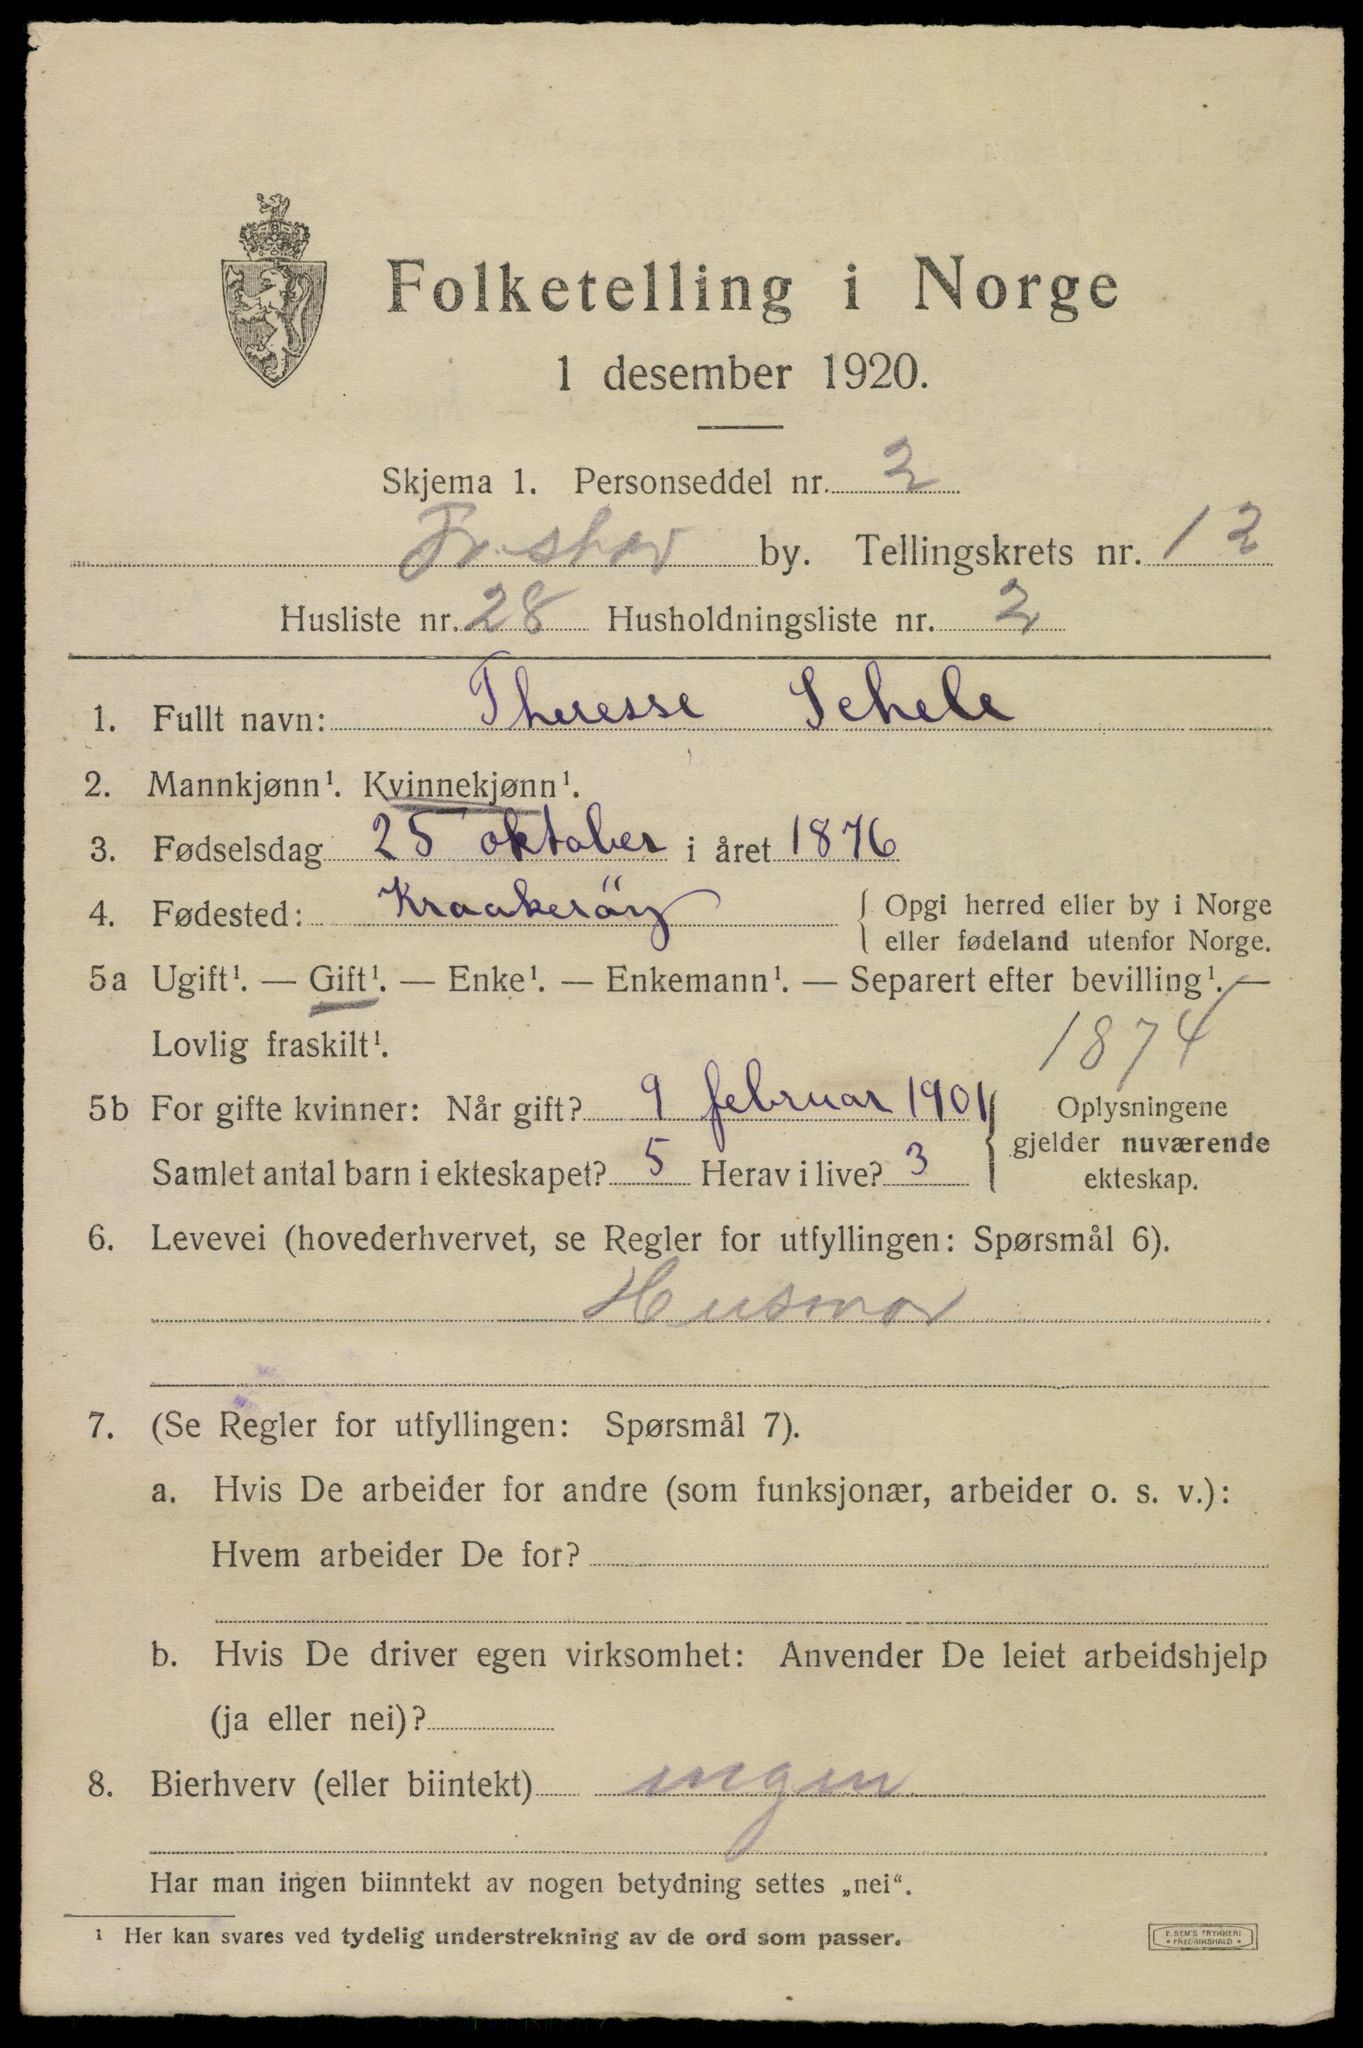 Folketelling i Norge
1 desember 1920.
Skjema 1. Personseddel nr. 2
Fr.stad by. Tellingskrets nr. 12
Husliste nr. 28 Husholdningsliste nr. 2
1. Fullt navn: Theresse Schele
2. Mannkjønn¹. Kvinnekjønn¹.
3. Fødselsdag 25 oktober i året 1876
4. Fødested: Kraakeröy { Opgi herred eller by i Norge
eller fødeland utenfor Norge.
5a Ugift¹. — Gift¹. — Enke¹. — Enkemann¹. — Separert efter bevilling¹. —
Lovlig fraskilt¹. 1874
5b For gifte kvinner: Når gift? 9 februar 1901 { Oplysningene
gjelder nuværende
Samlet antal barn i ekteskapet? 5 Herav i live? 3 ekteskap.
6. Levevei (hovederhvervet, se Regler for utfyllingen: Spørsmål 6).
Husmor
7. (Se Regler for utfyllingen: Spørsmål 7).
a. Hvis De arbeider for andre (som funksjonær, arbeider o. s. v.):
Hvem arbeider De for?
b. Hvis De driver egen virksomhet: Anvender De leiet arbeidshjelp
(ja eller nei)?
8. Bierhverv (eller biintekt) ingen
Har man ingen biinntekt av nogen betydning settes „nei“.
¹ Her kan svares ved tydelig understrekning av de ord som passer.
E. SEM'S TRYKKERI
FREDRIKSHALD